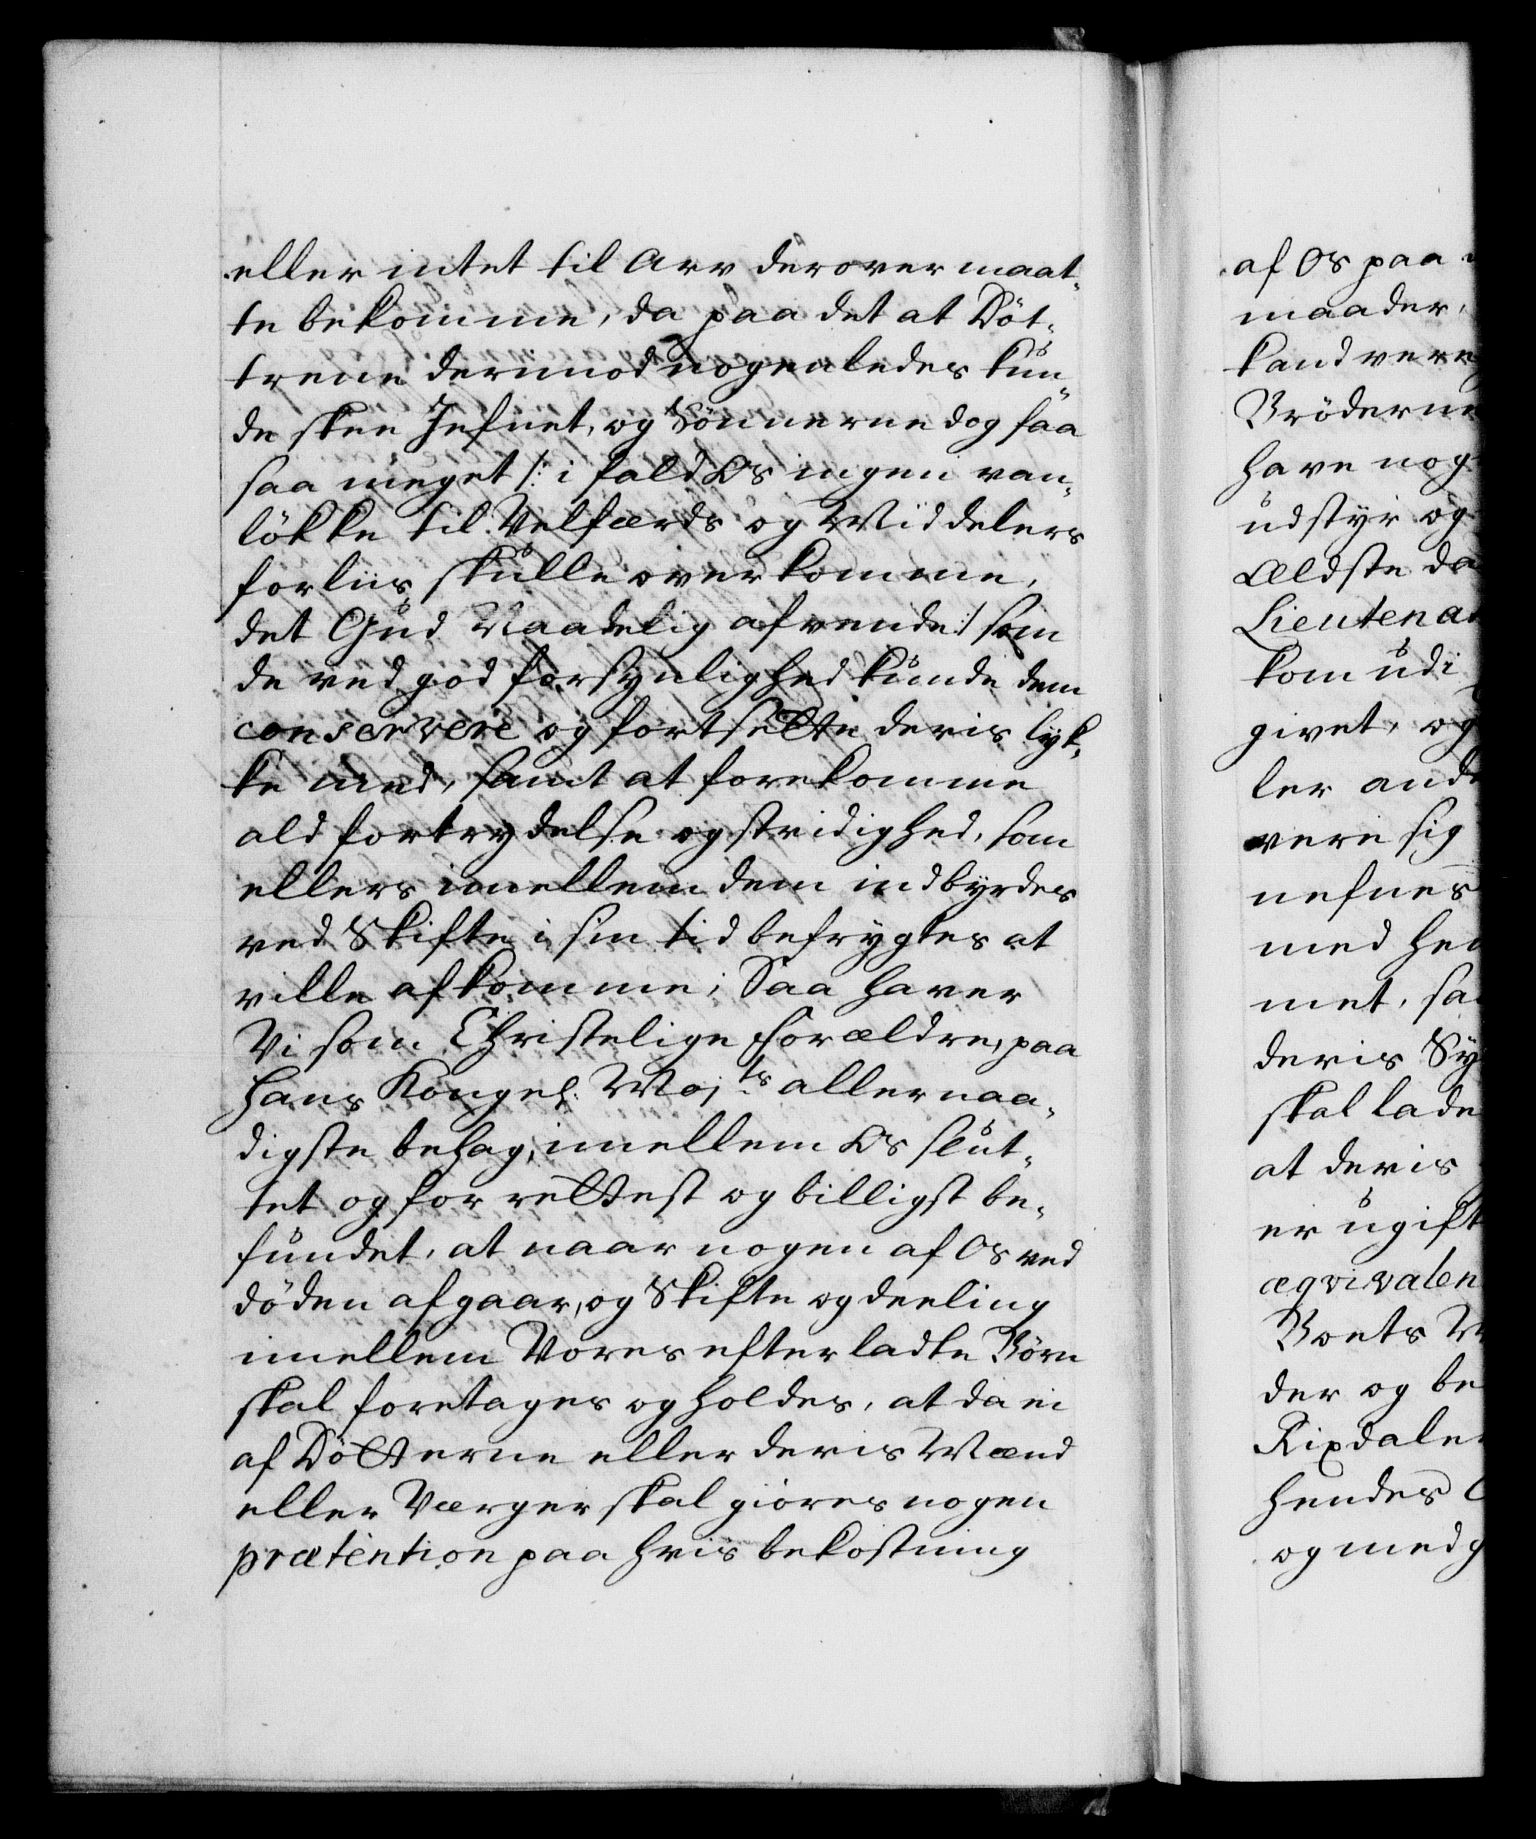 eller intet til Arv derover maat-
te bekomme, da paa det at Döt-
trene derimod nogenledes kun-
de skee Jefnet, og Sönnerne dog faa
saa meget /: i fald Os ingen van-
lökke til Velfærds og Middelers
forliis skulle overkomme,
det Gud Naadelig afvende :/ som
de ved god forsynlighed kunde dem
conservere og fortsette deris lyk-
ke med, samt at forekomme
ald fortrydelse og stridighed, som
ellers imellem dem indbyrdes
ved Skifte i sin tid befrygtes at
ville afkomme; Saa haver
Vi som Christelige Forældre, paa
Hans Kongel: Maj:ts allernaa-
digste behag, imellem Os slut-
tet og for rettest og billigst be-
fundet, at naar nogen af Os ved
döden afgaar, og Skifte og deeling
imellem Vores efterladte Börn
skal foretages og holdes, at da ei
af Dötterne eller deris Mænd
eller Værger skal giöres nogen
prætention paa hvis bekostning
af Os paa
maader,
kand være
Bröderne
have nog
udstyr og
Ældste da
Lieutenan
kom udi
givet, og
ler and
være sig
nefnes
med hen
met, saa
deris Sy
skal lade
at deris
er ugift
æqvivalen
Boets M
der og be
Rixdaler
hendes
og med g